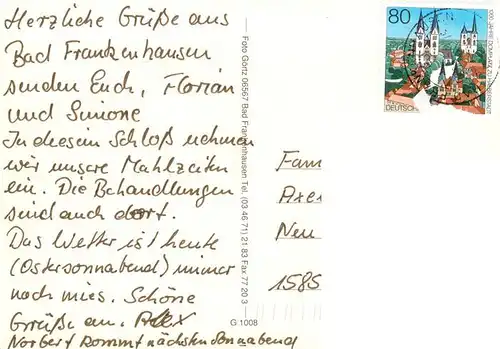 Herzliche Grüße aus
Bad Frankenhausen
senden Euch, Florian
und Simone
In diesem Schloß nehmen
wir unsere Mahlzeiten
ein. Die Behandlungen
sind auch dort.
Das Wetter ist heute
(Ostersonnabend) immer
noch mies. Schöne
Grüße an
Norbert kommt nächsten Sonnabend
Foto Görtz 06567 Bad Frankenhausen Tel. (03 46 71) 21 83 Fax 77 20 3
G 1008
80
DEUTSCHE
Fam
Axe
Neu
1585